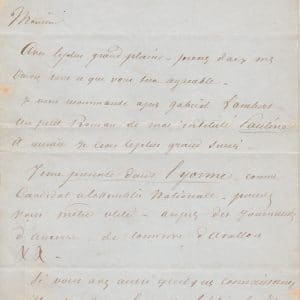 Monsieur
Avec le plus grand plaisir – prenez dans mes
livres tout ce que vous sera agréable.
Je vous recommande après gabriel Lambert
un petit Roman de moi intitulé Pauline
Il aurait je crois le plus grand succès.
Je me présente dans l'yonne comme
Candidat à l'assemblée Nationale – prenez
vous
d'auxerre, de tonnerre d'avallon
Si vous avez aussi quelques connaissances